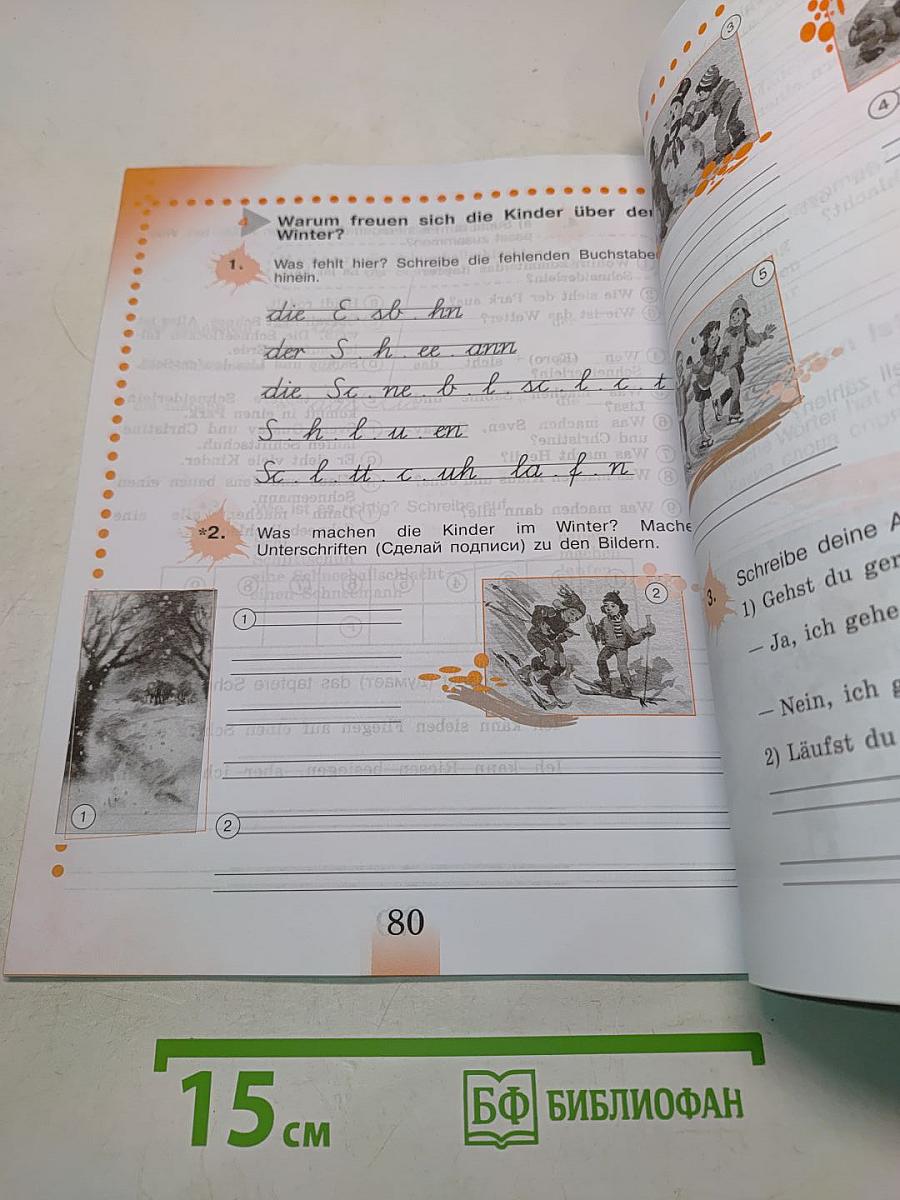 Warum freuen sich die Kinder über den
Winter?
1. Was fehlt hier? Schreibe die fehlenden Buchstabe
hinein.
die E . sb . hn
der S . h . ee . ann
die Sc . ne . b . l . sc . l . c . t
S . h . l . u . en
Sc . l . tt . c . uh . la . f . n
*2. Was machen die Kinder im Winter? Mache
Unterschriften (Сделай подписи) zu den Bildern.
1
2
1
2
80
3
4
5
3. Schreibe deine A
1) Gehst du ger
– Ja, ich gehe
– Nein, ich g
2) Läufst du
15 см
БФ БИБЛИОФАН